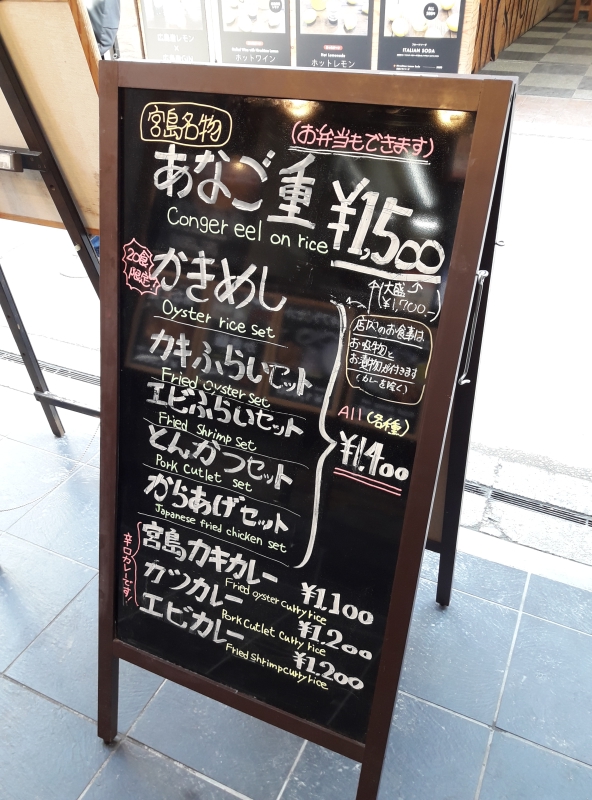 ホットワイン
ホットレモン
ITALIAN SODA
宮島名物
(お弁当もできます)
あなご重 ¥1,500
Conger eel on rice
↑大盛↑
(¥1,700.-)
20食
限定!
かきめし
Oyster rice set
カキふらいセット
Fried Oyster set
エビふらいセット
Fried Shrimp set
とんかつセット
Pork Cutlet set
からあげセット
Japanese fried chicken set
店内のお食事は
お吸物と
お漬物が付きます
(カレーを除く)
All (各種)
¥1,400
辛口カレーです!
宮島カキカレー ¥1,100
Fried oyster curry rice
カツカレー ¥1,200
Pork Cutlet Curry rice
エビカレー ¥1,200
Fried Shrimp curry rice